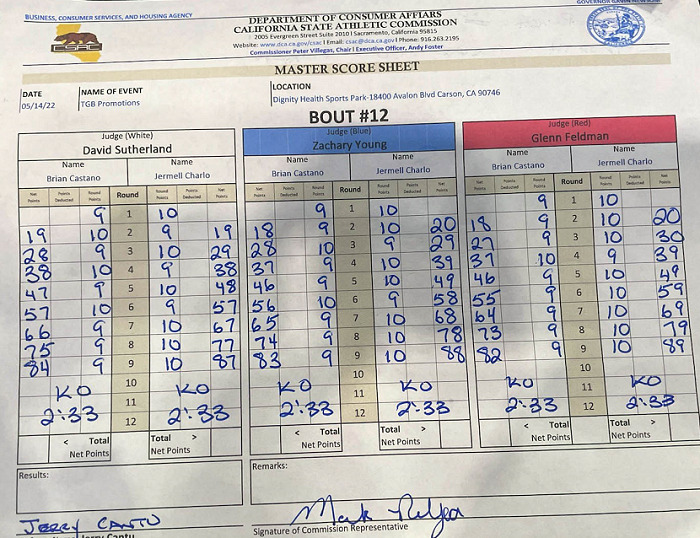 BUSINESS, CONSUMER SERVICES, AND HOUSING AGENCY
DEPARTMENT OF CONSUMER AFFAIRS
CALIFORNIA STATE ATHLETIC COMMISSION
2005 Evergreen Street Suite 2010 | Sacramento, California 95815
Website: www.dca.ca.gov/csac | Email: csac@dca.ca.gov | Phone: 916.263.2195
Commissioner Peter Villegas, Chair | Executive Officer, Andy Foster
CSAC
MASTER SCORE SHEET
DATE NAME OF EVENT LOCATION
05/14/22 TGB Promotions Dignity Health Sports Park-18400 Avalon Blvd Carson, CA 90746
BOUT #12
Judge (White) Judge (Blue) Judge (Red)
David Sutherland Zachary Young Glenn Feldman
Name Name Name Name Name Name
Brian Castano Jermell Charlo Brian Castano Jermell Charlo Brian Castano Jermell Charlo
Net Points Points Deducted Round Points Round Round Points Points Deducted Net Points Net Points Points Deducted Round Points Round Round Points Points Deducted Net Points Net Points Points Deducted Round Points Round Round Points Points Deducted Net Points
9 1 10 9 1 10 9 1 10
19 10 2 9 19 18 9 2 10 20 18 9 2 10 20
28 9 3 10 29 28 10 3 9 29 27 9 3 10 30
38 10 4 9 38 37 9 4 10 39 37 10 4 9 39
47 9 5 10 48 46 9 5 10 49 46 9 5 10 49
57 10 6 9 57 56 10 6 9 58 55 9 6 10 59
66 9 7 10 67 65 9 7 10 68 64 9 7 10 69
75 9 8 10 77 74 9 8 10 78 73 9 8 10 79
84 9 9 10 87 83 9 9 10 88 82 9 9 10 89
10 10 10
KO 11 KO KO 11 KO KO 11 KO
2:33 12 2:33 2:33 12 2:33 2:33 12 2:33
< Total Total > < Total Total > < Total Total >
Net Points Net Points Net Points Net Points Net Points Net Points
Results: Remarks:
JERRY CANTU
Signature of Commission Representative